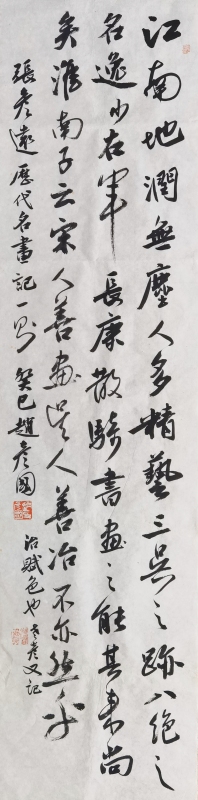 江南地潤無塵人多精藝三吴之跡八絶之
名逸少右軍長康散騎書畫之能其来尚
矣淮南子云宋人善畫吴人善冶不亦然乎
張彦遠歷代名畫記一則 癸巳趙彦國
治賦色也 彦又記